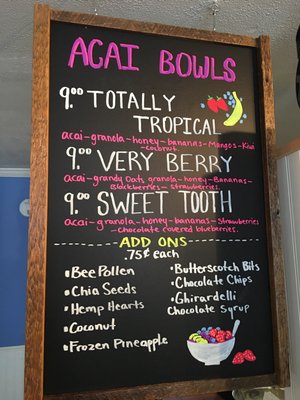 ACAI BOWLS
9.00 TOTALLY
TROPICAL
acai-granola-honey-bananas-Mangos-Kiwi
-coconut.
9.00 VERY BERRY
acai-grandy Oats granola-honey-Bananas-
Blackberries-strawberries.
9.00 SWEET TOOTH
acai-granola-honey-bananas-Strawberries
-chocolate covered blueberries.
ADD ONS
.75¢ each
•Bee Pollen
•Chia Seeds
•Hemp Hearts
•Coconut
•Frozen Pineapple
•Butterscotch Bits
•Chocolate Chips
•Ghirardelli
Chocolate Syrup